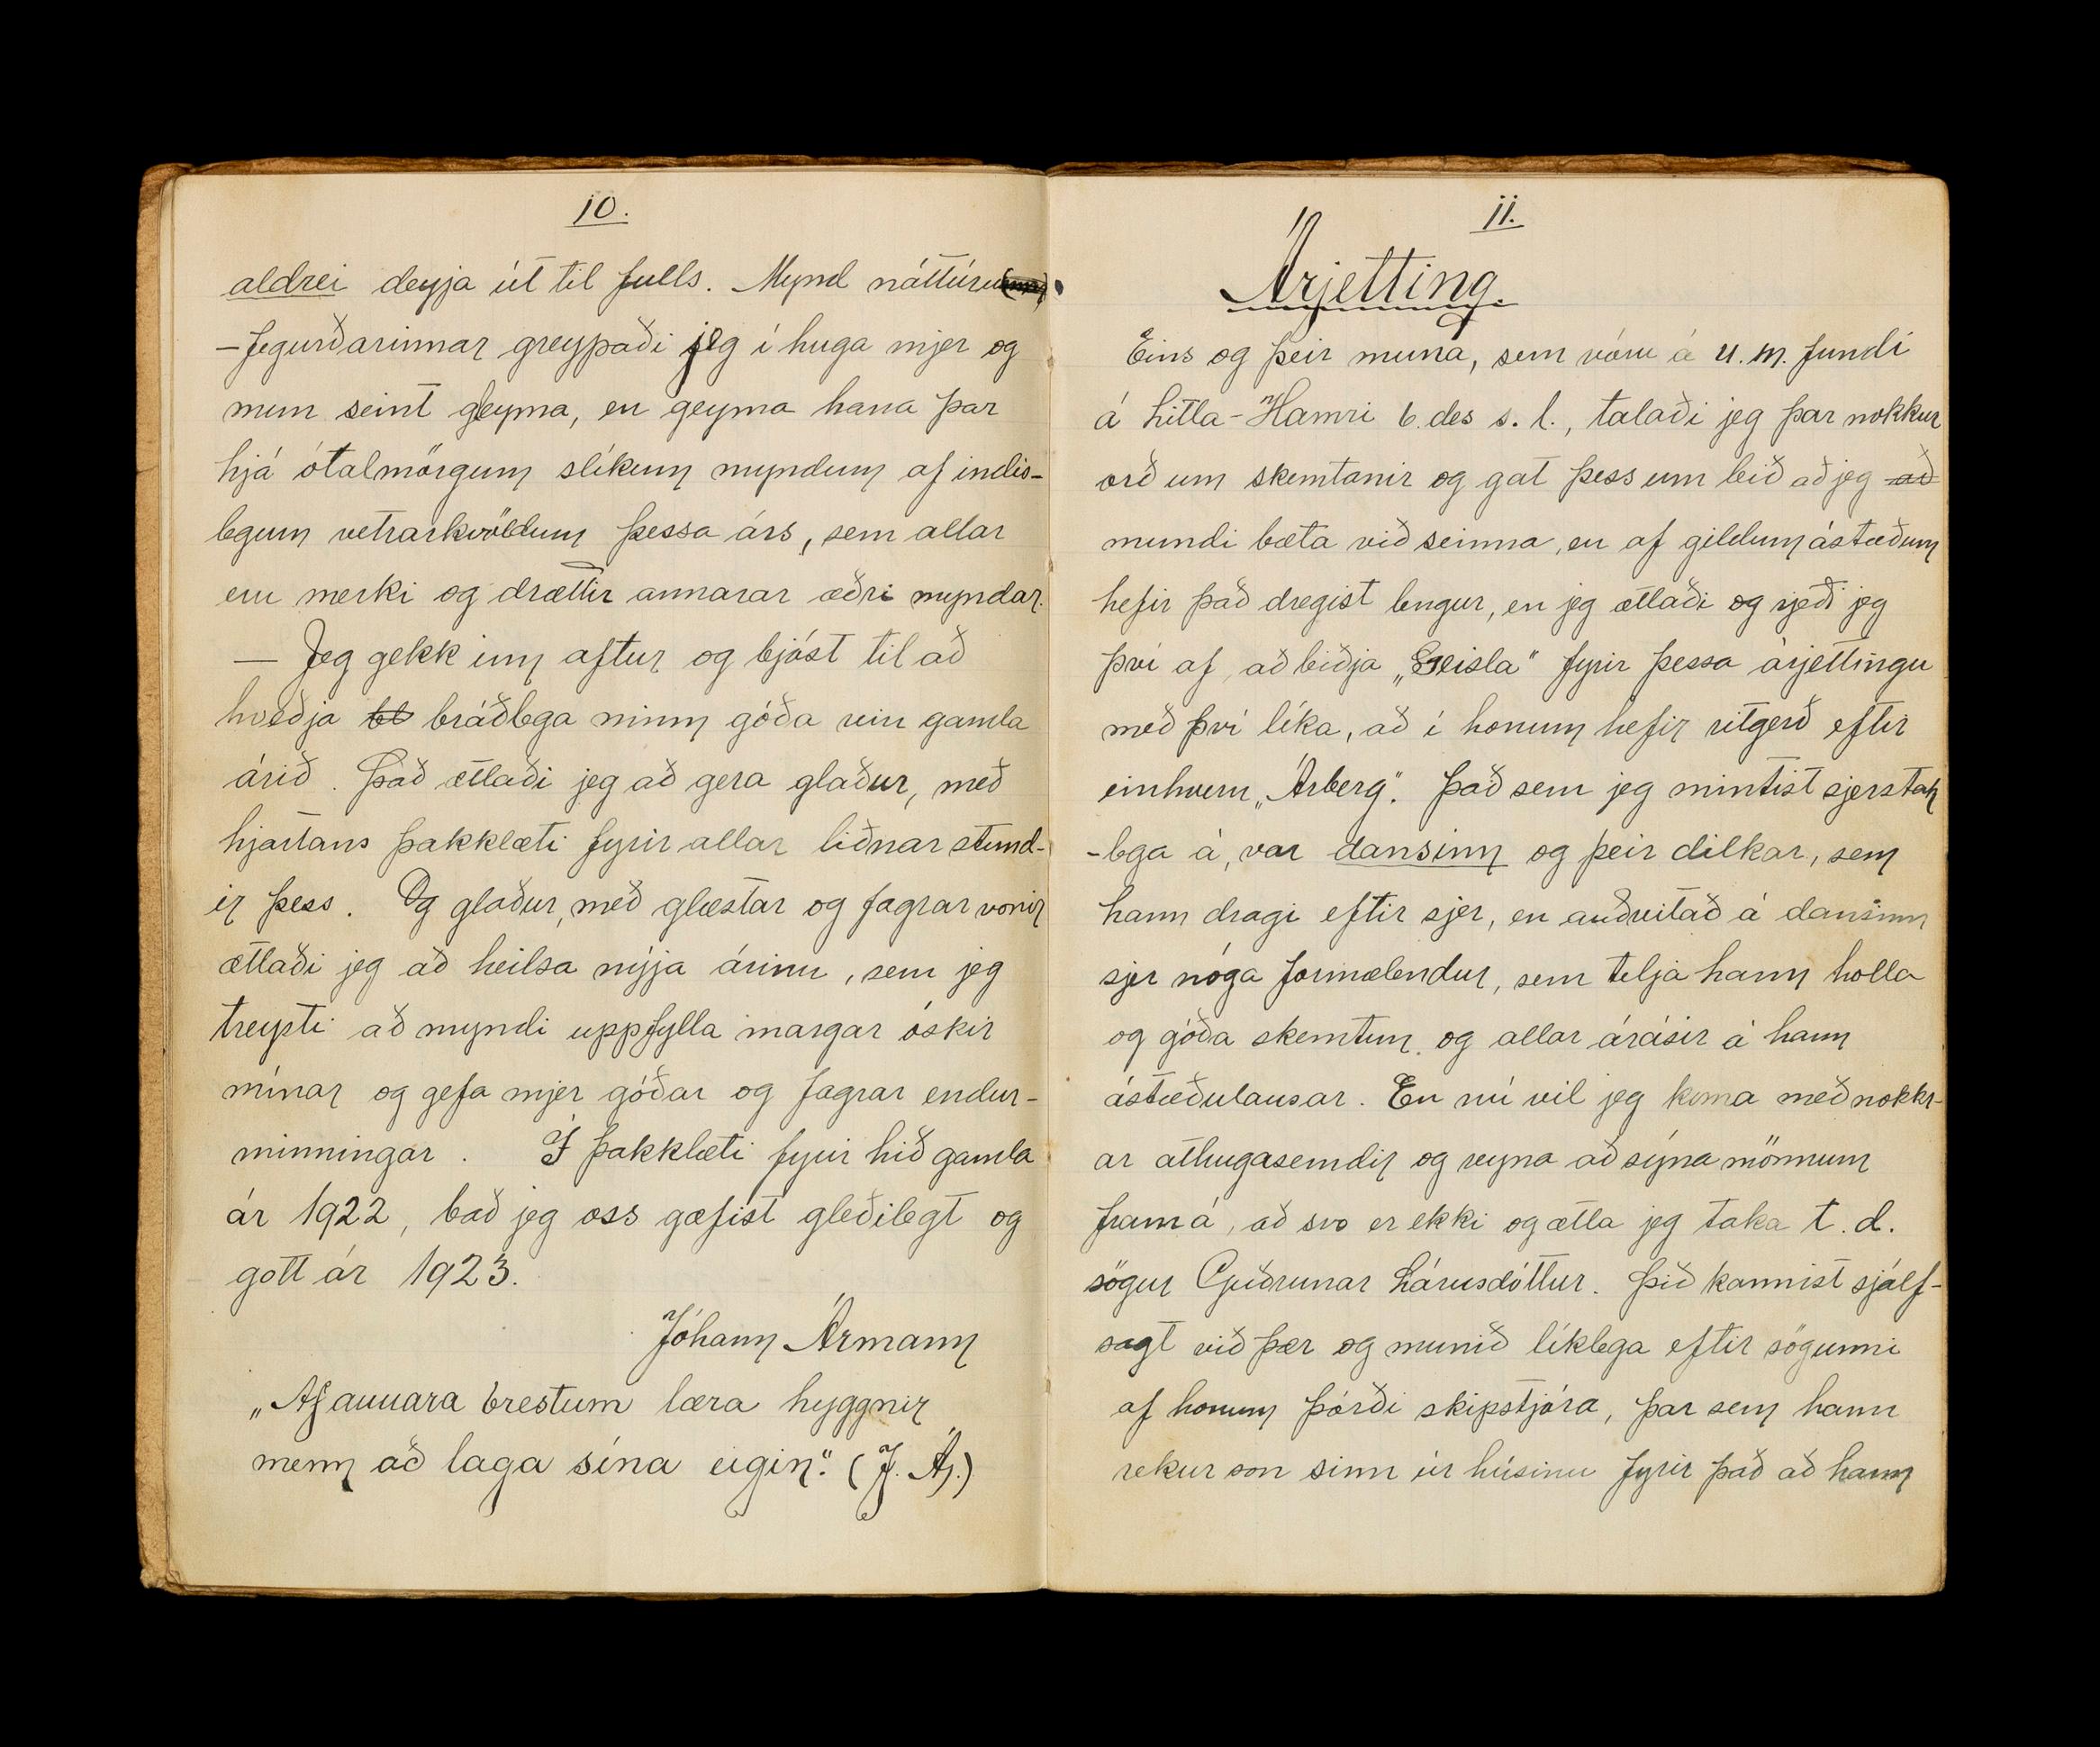 10.
aldrei deyja út til fulls. Mynd náttúru
-fegurðarinnar greypaði jeg í huga mjer og
mun seint gleyma, en geyma hana þar
hjá ótalmörgum slíkum myndum af indis-
legum vetrarkvöldum þessa árs, sem allar
eru merki og drættir annarar æðri myndar.
— Jeg gekk inn aftur og bjóst til að
hveðja bl bráðlega minn góða vin gamla
árið. Það ætlaði jeg að gera glaður, með
hjartans þakklæti fyrir allar liðnar stund-
ir þess. Og glaður, með glæstar og fagrar vonir
ætlaði jeg að heilsa nýja árinu, sem jeg
treysti að myndi uppfylla margar óskir
mínar og gefa mjer góðar og fagrar endur-
minningar. Í þakklæti fyrir hið gamla
ár 1922, bað jeg oss gæfist gleðilegt og
gott ár 1923.
Jóhann Ármann
„Af annara brestum læra hyggnir
menn að laga sína eigin." (J. Á.)
11.
Árjetting.
Eins og þeir muna, sem vóru á U. M. fundi
á Litla-Hamri 6. des s. l., talaði jeg þar nokkur
orð um skemtanir og gat þess um leið að jeg að
mundi bæta við seinna, en af gildum ástæðum
hefir það dregist lengur, en jeg ætlaði og rjeði jeg
því af, að biðja „Geisla" fyrir þessa árjettingu
með því líka, að í honum hefir ritgerð eftir
einhvern „Árberg". Það sem jeg mintist sjerstak
-lega á, var dansinn og þeir dilkar, sem
hann dragi eftir sjer, en auðvitað á dansinn
sjer nóga formælendur, sem telja hann holla
og góða skemtun og allar árásir á hann
ástæðulausar. En nú vil jeg koma með nokkr-
ar athugasemdir og reyna að sýna mönnum
fram á, að svo er ekki og ætla jeg taka t. d.
sögur Guðrunar Lárusdóttur. Þið kannist sjálf-
sagt við þær og munið líklega eftir sögunni
af honum Þórði skipstjóra, þar sem hann
rekur son sinn úr húsinu fyrir það að hann